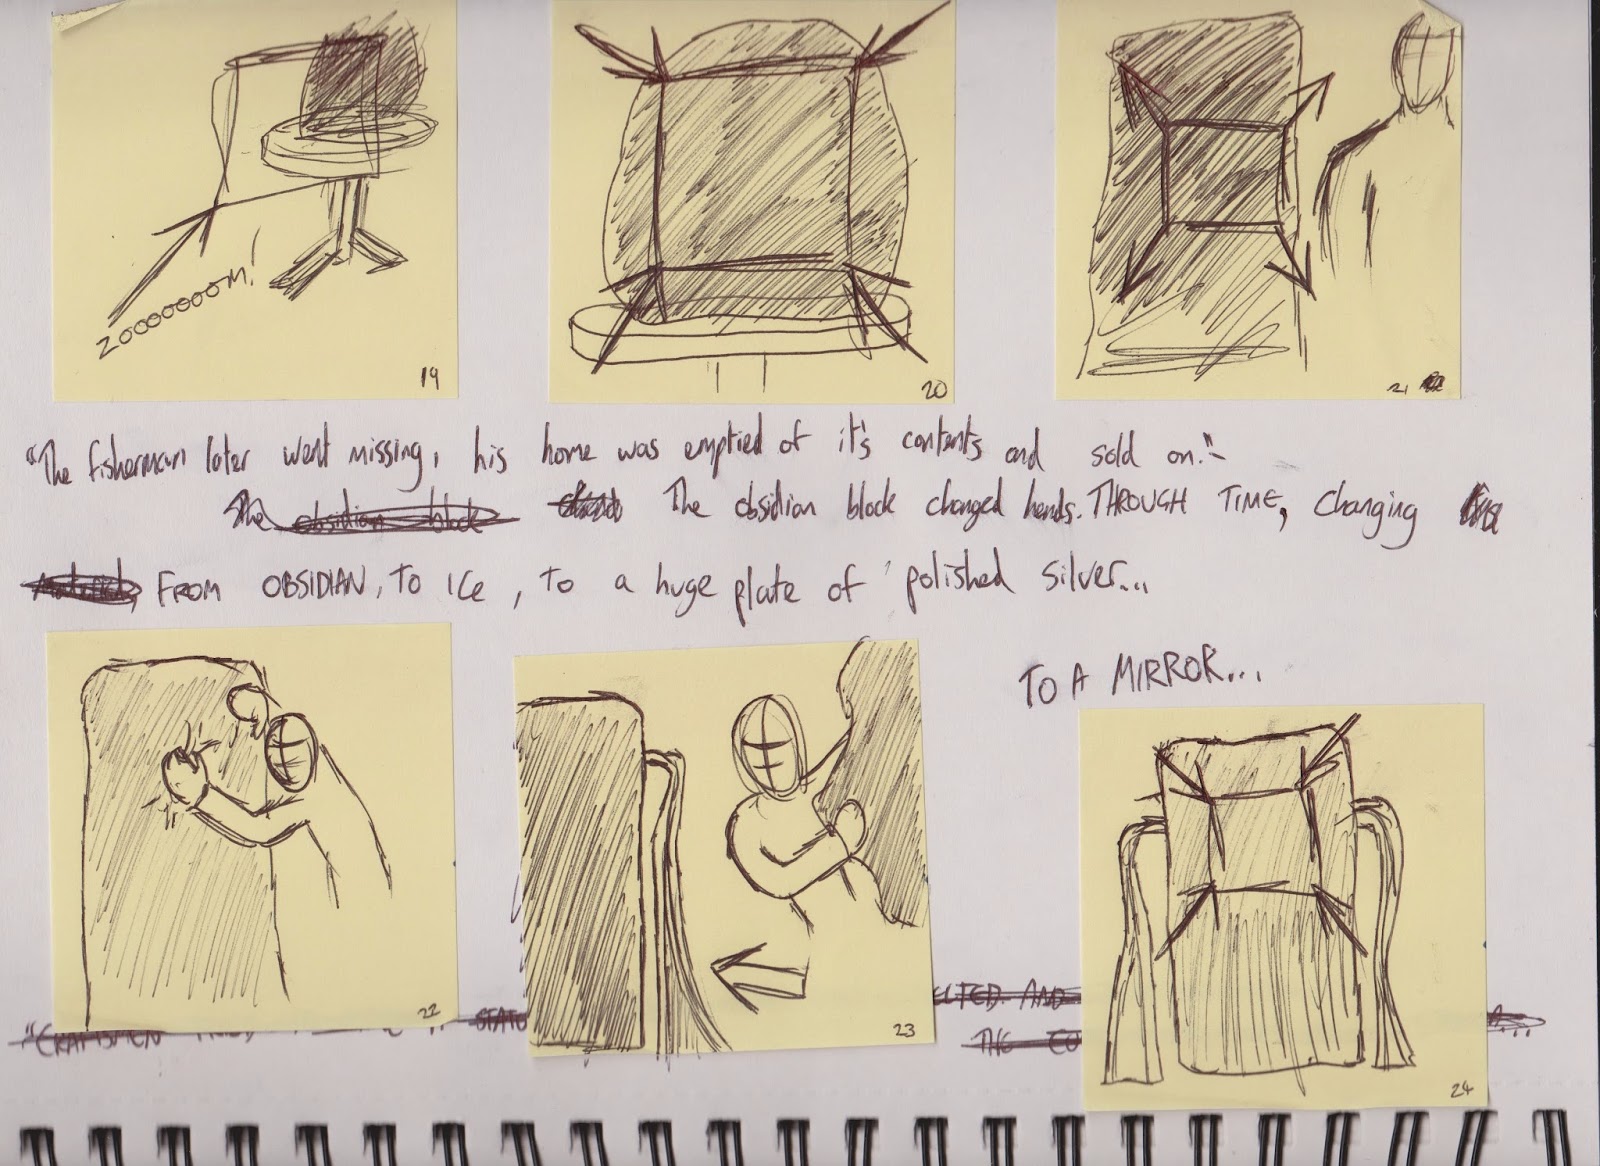 ZOOOOOOOM!
19
20
21
"The fisherman later went missing, his home was emptied of it's contents and sold on."
The obsidian block The obsidian block changed hands. THROUGH TIME, changing
FROM OBSIDIAN, TO ICE, TO a huge plate of polished silver...
TO A MIRROR...
22
23
24
"CRAFTSMEN